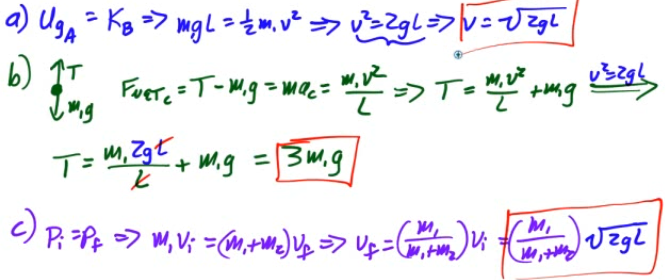 a) U_gA = K_B => mgL = ½ m₁v² => v² = 2gL => v = √2gL
b) ↑T ↓m₁g F_NETc = T - m₁g = ma_c = m₁v²/L => T = m₁v²/L + m₁g v²=2gL =>
T = m₁2gL/L + m₁g = 3m₁g
c) P_i = P_f => m₁v_i = (m₁+m₂)v_f => v_f = (m₁/(m₁+m₂))v_i = (m₁/(m₁+m₂))√2gL